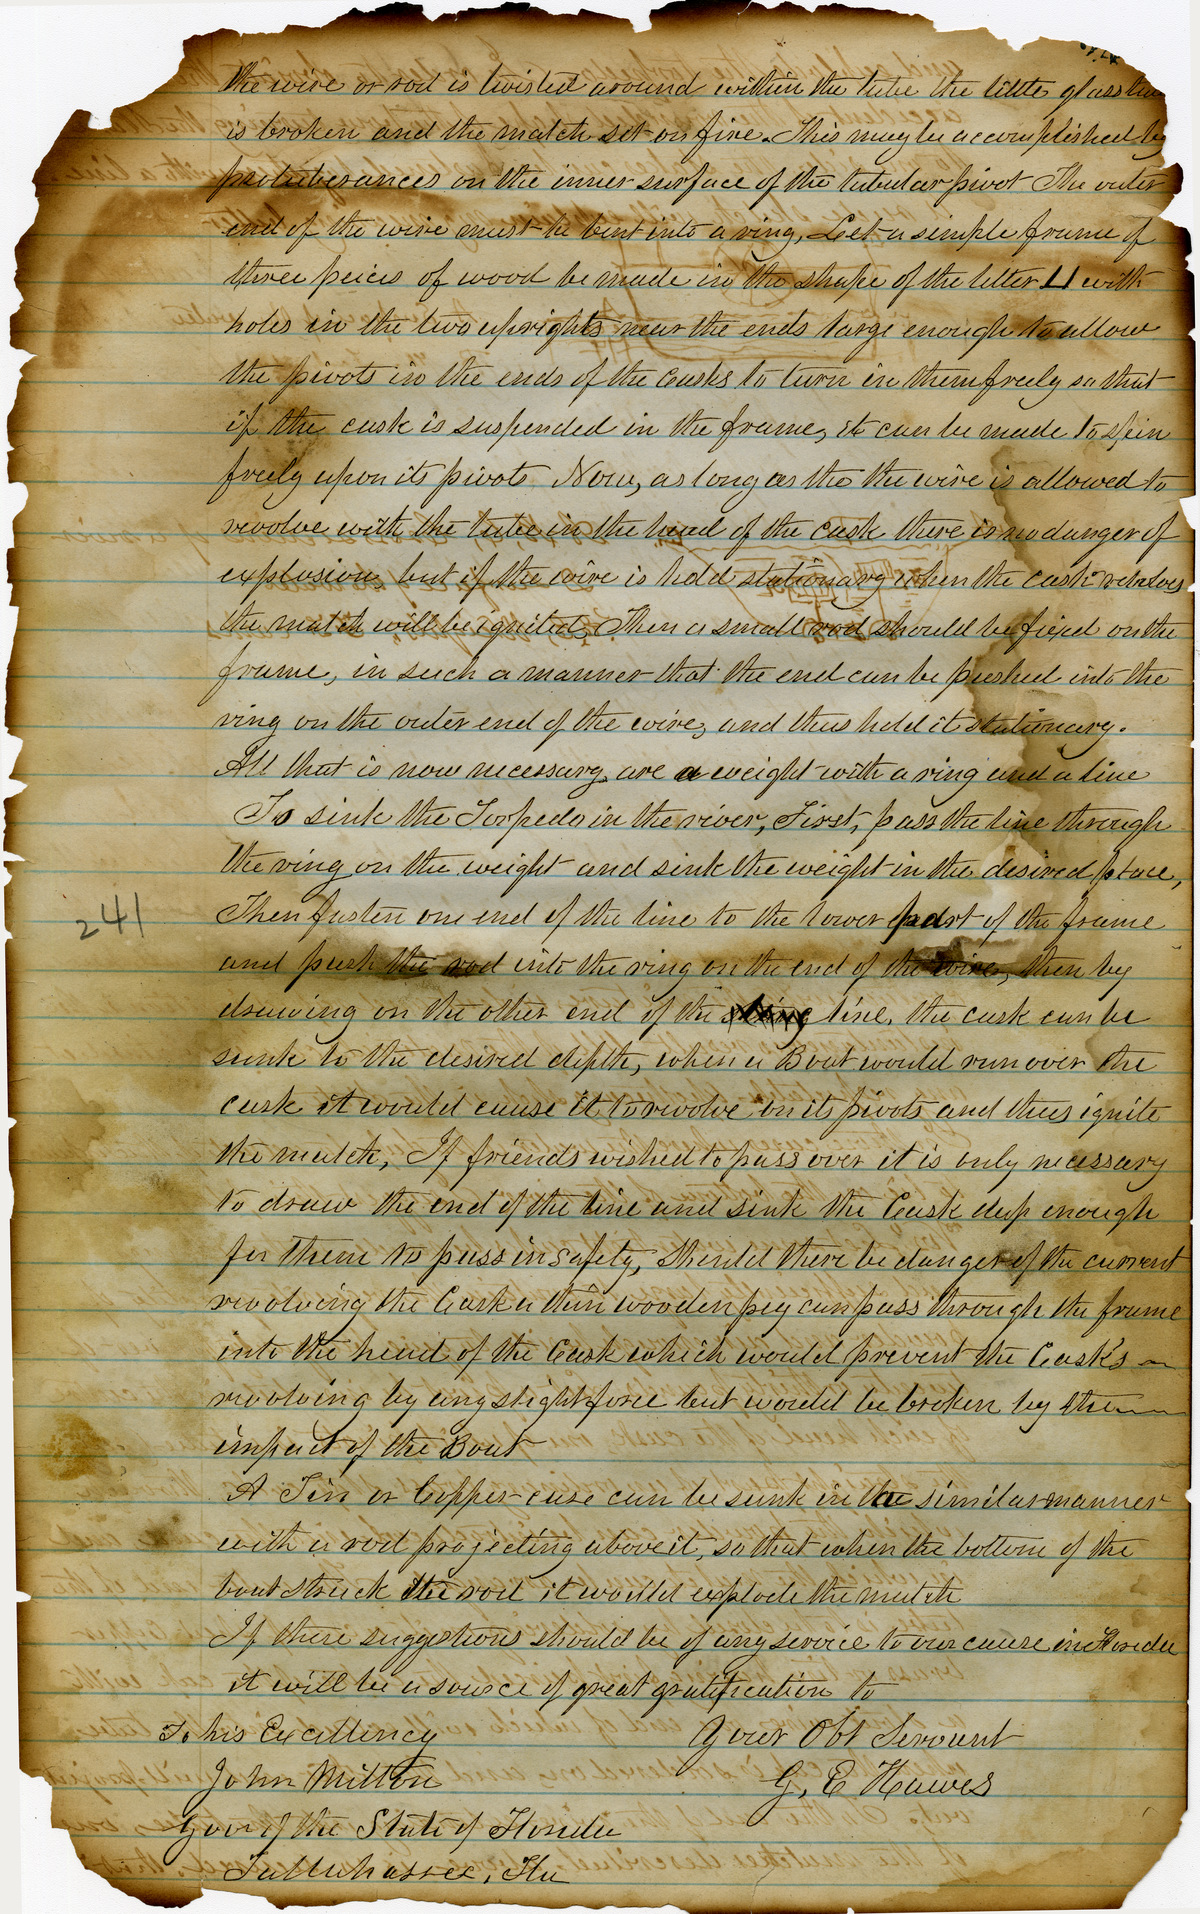 the wire or rod is twisted around within the tube the little glass
is broken and the match set on fire. This may be accomplished by
protuberances on the inner surface of the tubular pivot The outer
end of the wire must be bent into a ring, Let a simple frame of
three peices of wood be made in the shape of the letter U with
holes in the two uprights near the ends large enough to allow
the pivots in the ends of the Casks to turn in them freely so that
if the cask is suspended in the frame, it can be made to spin
freely upon its pivots. Now, as long as the the wire is allowed to
revolve with the tube in the head of the cask there is no danger of
explosion, but if the wire is held stationary when the cask revolves
the match will be ignited, Then a small rod should be fixed on the
frame, in such a manner that the end can be pushed into the
ring on the outer end of the wire, and thus hold it stationary.
All that is now necessary are a weight with a ring and a line
To sink the Torpedo in the river, First, pass the line through
the ring on the weight and sink the weight in the desired place,
241
Then fasten one end of the line to the lower part of the frame
and push the rod into the ring on the end of the wire, then by
drawing on the other end of the line, the cask can be
sunk to the desired depth, when a Boat would run over the
cask it would cause it to revolve on its pivots and thus ignite
the match, If friends wished to pass over it is only necessary
to draw the end of the line and sink the Cask deep enough
for them to pass in safety, Should there be danger of the current
revolving the Cask a thin wooden peg can pass through the frame
into the head of the Cask which would prevent the Cask's
revolving by any slight force but would be broken by the
impact of the Boat
A Tin or Copper case can be sunk in the similar manner
with a rod projecting above it, so that when the bottom of the
boat struck the rod it would explode the match
If these suggestions should be of any service to our cause in Florida
it will be a source of great gratification to
To his Excellency Your Obt Servant
John Milton G. E Hawes
Gov of the State of Florida
Tallahassee, Fla